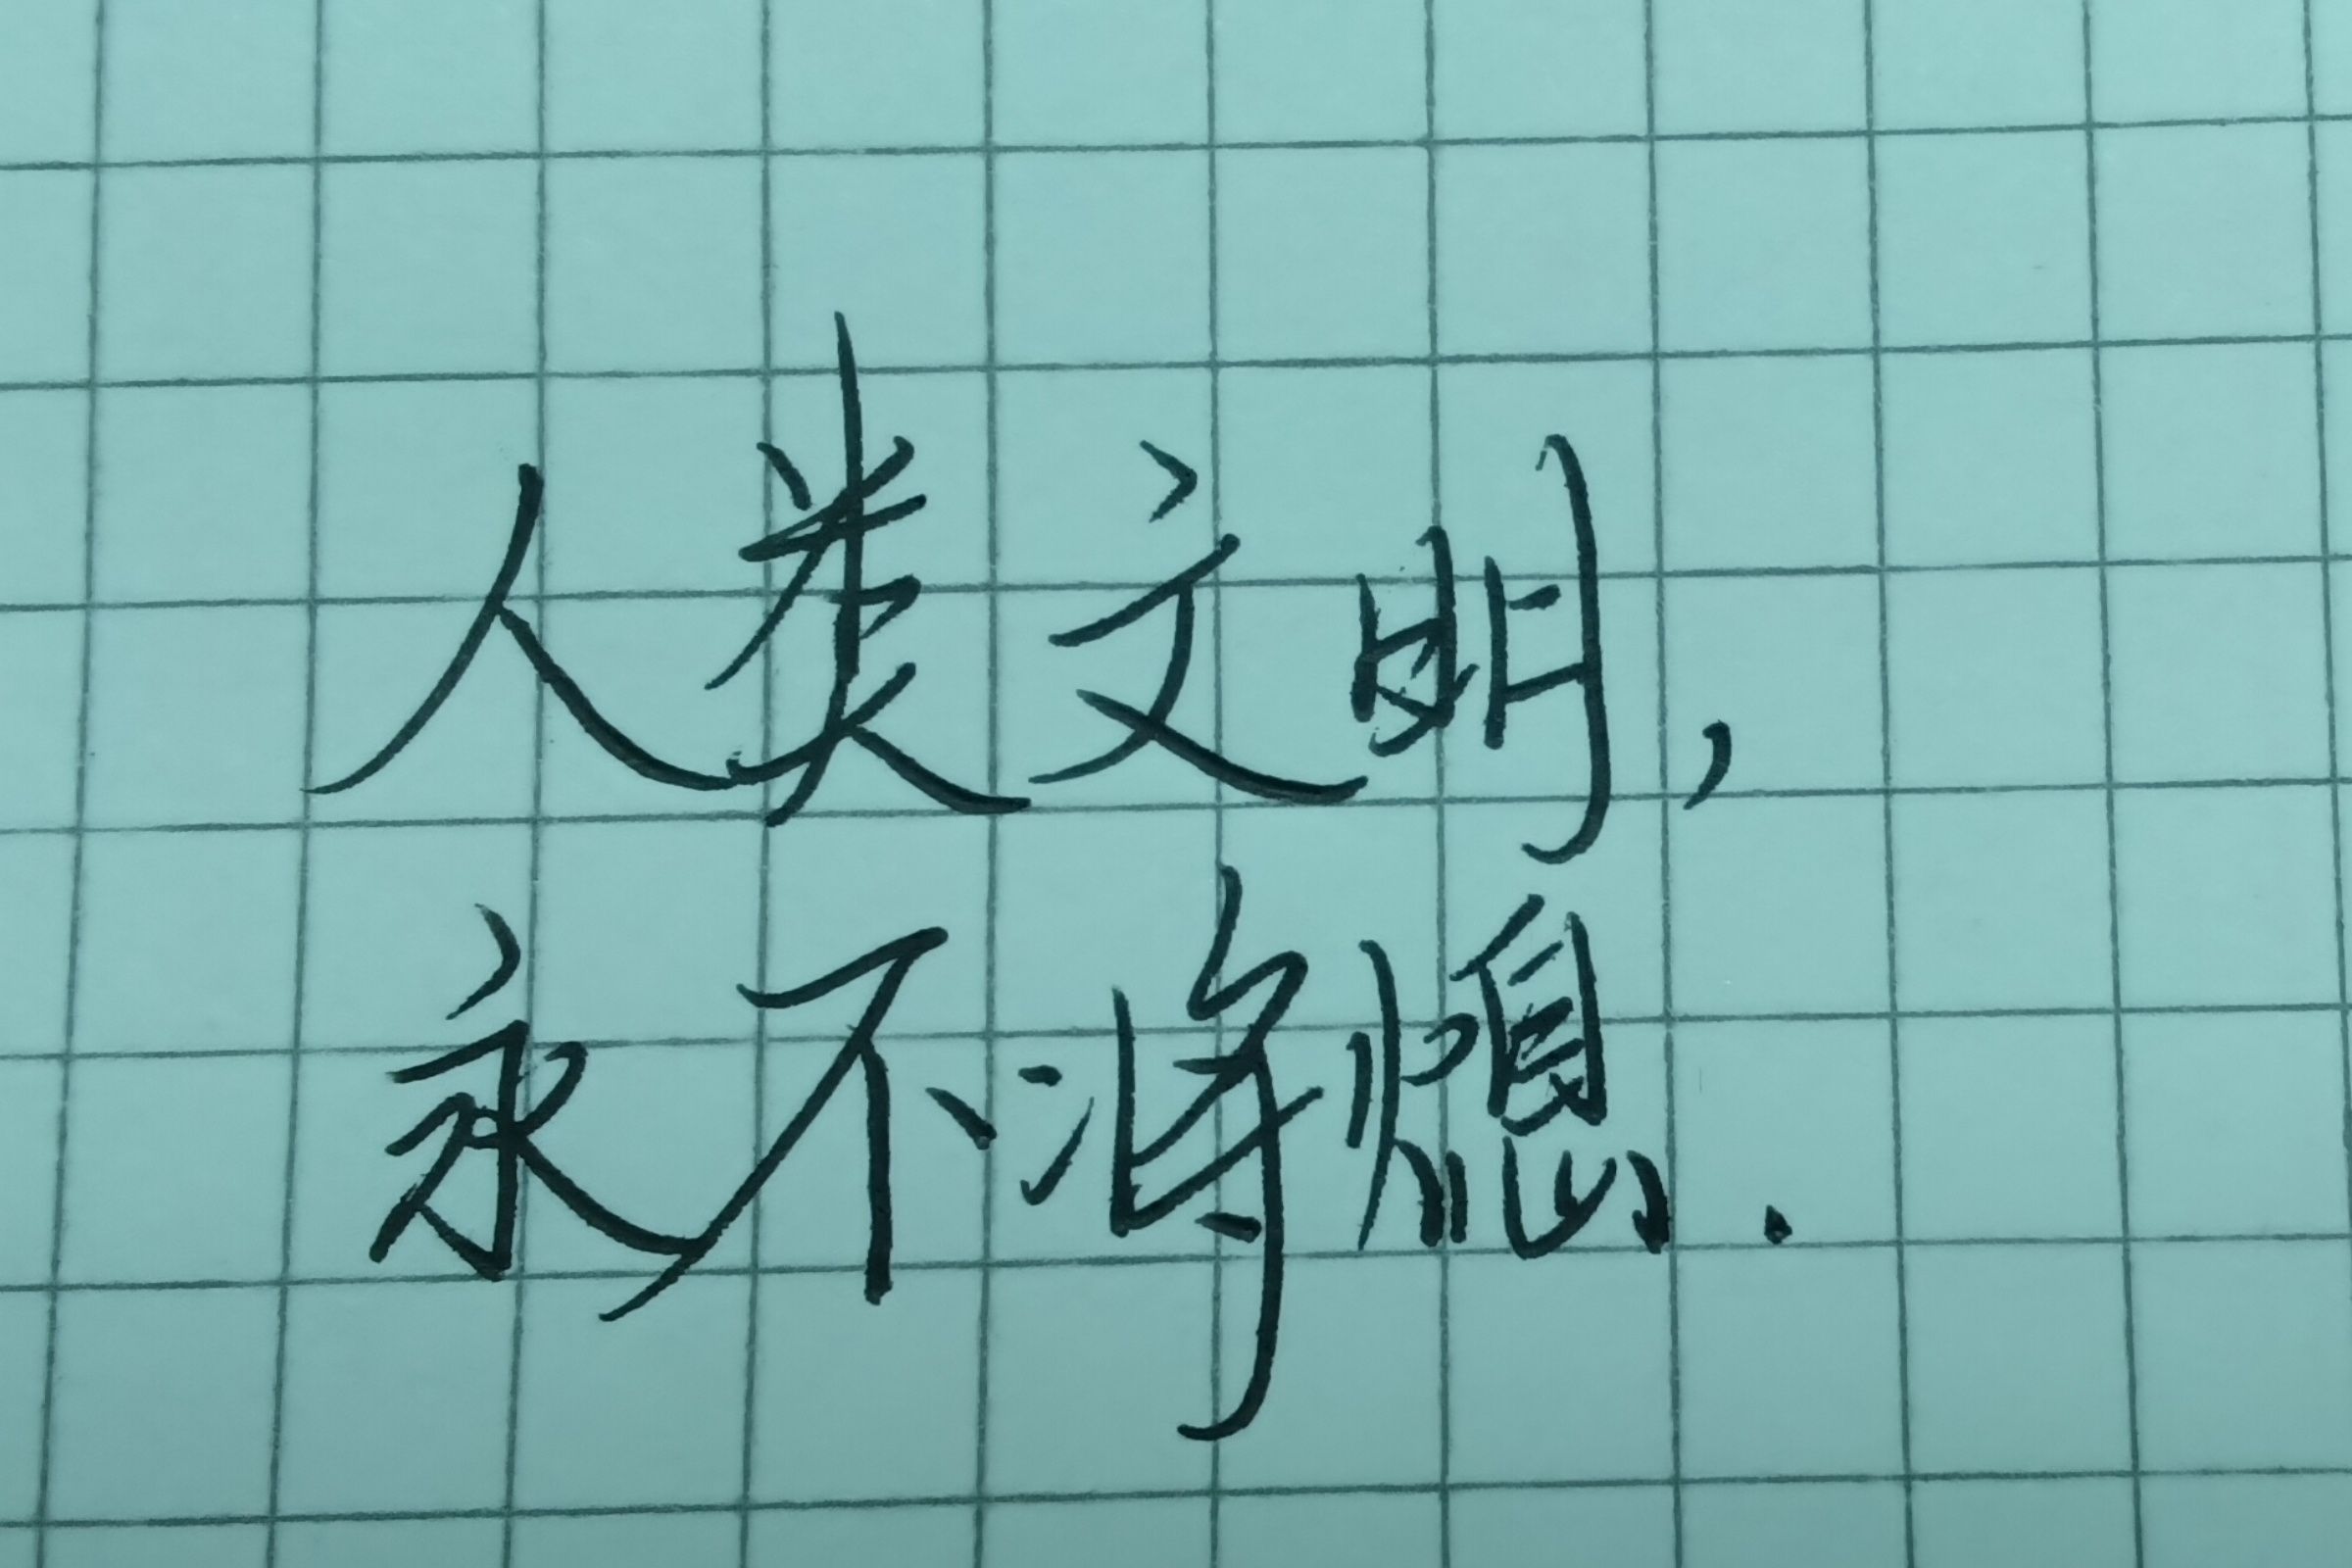 人类文明,
永不将熄.